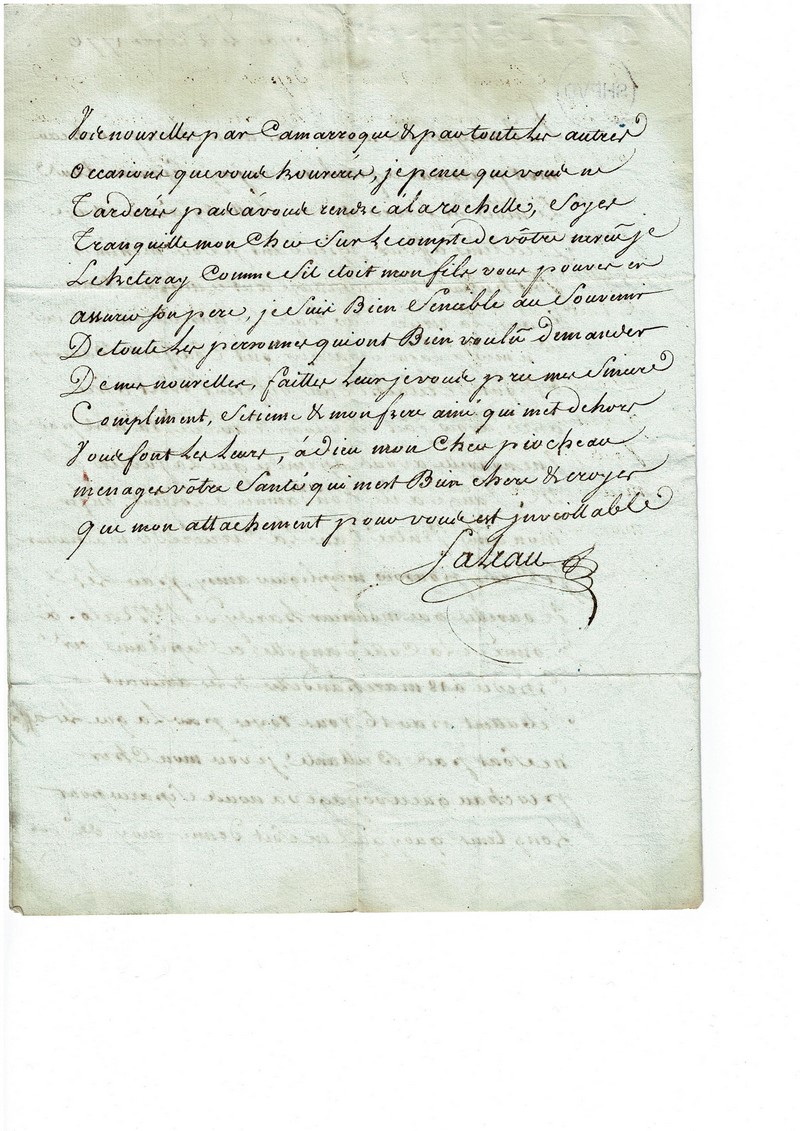 Vos nouvelles par Camarroque & par toute les autres
Occasions que vous trouverés, je pence que vous ne
Tarderés pas à vous rendre à la rochelle, Soyes
Tranquille mon Cher Sur Le compte de vôtre neveu je
Le treteray Comme Sil etoit mon fils vous pouves en
assurer son pere, je Suis Bien Sencible au Souvenir
De toute Les personnes qui ont Bien voulû demander
De mes nouvelles, faittes Leur je vous prie mes Sincere
Compliment, & mon frere ainé qui met dehors
Vous font Les Leurs, à dieu mon Cher piocheau
menages vôtre Santé qui mest Bien chere & croyes
que mon attachement pour vous est jnviollable